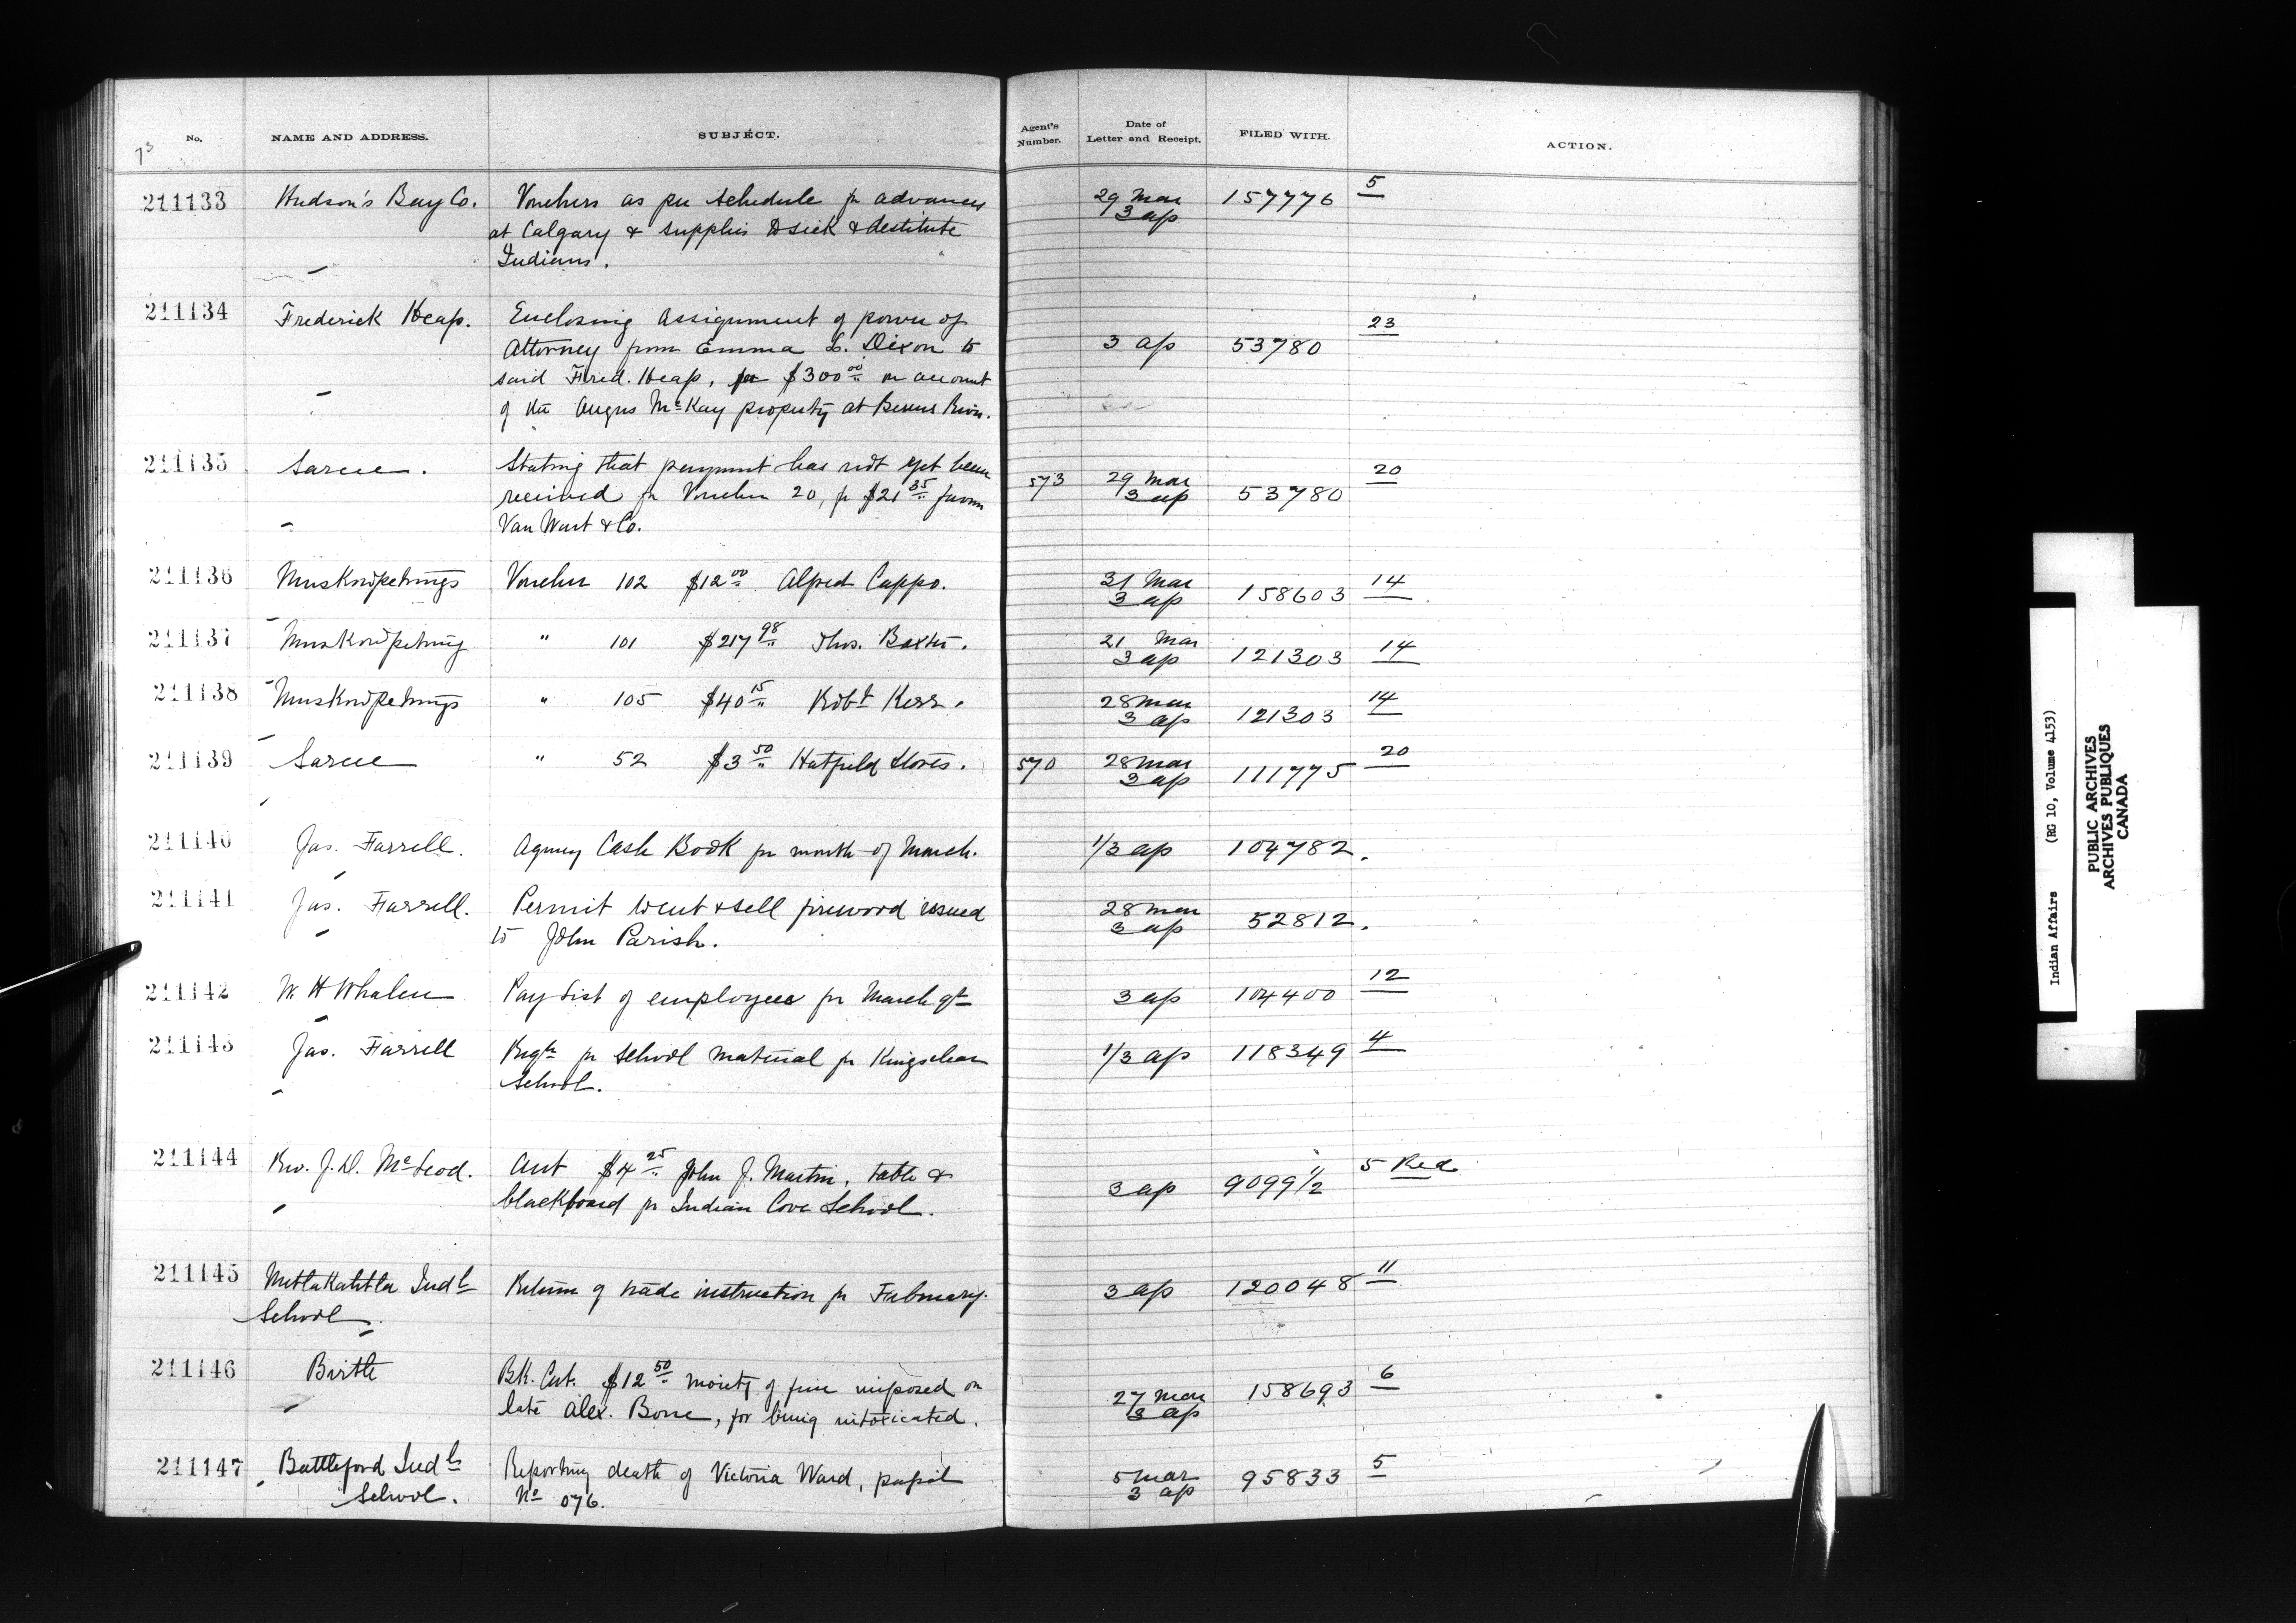 No. NAME AND ADDRESS. SUBJECT. Agent's Number. Date of Letter and Receipt. FILED WITH. ACTION.
73
211133 Hudson's Bay Co. Vouchers as per Schedule for advances 29 Mar 157776 5
at Calgary & supplies to sick & destitute 3 ap
Indians.
211134 Frederick Heap. Enclosing Assignment of power of 23
Attorney from Emma L. Dixon to 3 ap 53780
said Fred. Heap, for $300 00 on account
of the Angus McKay property at Berens River.
211135 Sarcee. Stating that payment has not yet been 20
received for Voucher 20, for $21 35 favor 573 29 Mar 53780
Van Wart & Co. 3 ap
211136 Muskowpetungs Voucher 102 $12 00 Alfred Cappo. 31 Mar 158603 14
3 ap
211137 Muskowpetung " 101 $217 98 Thos. Baxter. 21 Mar 121303 14
3 ap
211138 Muskowpetungs " 105 $40 15 Robt Kerr. 28 Mar 121303 14
3 ap
211139 Sarcee " 52 $3 50 Hatfield Stores. 570 28 Mar 111775 20
3 ap
211140 Jas. Farrell. Agency Cash Book for month of March. 1/3 ap 104782.
211141 Jas. Farrell. Permit to cut & sell firewood issued 28 Mar 52812.
to John Parish. 3 ap
211142 W. H Whalen Pay List of employees for March qt 3 ap 104400 12
211143 Jas. Farrell Reqn for School material for Kingsclear 1/3 ap 118349 4
School.
211144 Rev. J. D. McLeod. Acct $4 25 John J. Martin, table & 3 ap 9099 1/2 5 Red
blackboard for Indian Cove School.
211145 Metlakahtla Indl Return of trade instruction for February. 3 ap 120048 11
School.
211146 Birtle Bk. Cert. $12 50 moiety of fine imposed on 27 Mar 158693 6
late Alex. Bone, for being intoxicated. 3 ap
211147 Battleford Indl Reporting death of Victoria Ward, pupil 5 Mar 95833 5
School. No 076. 3 ap
Indian Affairs (RG 10, Volume 4153)
PUBLIC ARCHIVES
ARCHIVES PUBLIQUES
CANADA